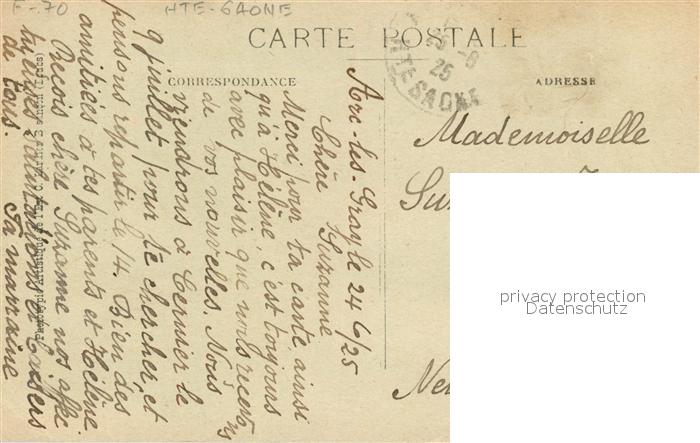 F-70 HTE-SAONE
CARTE POSTALE
CORRESPONDANCE
ADRESSE
25-6
25
HTE SAONE
Arc-les-Gray le 24 6/25
Chère Suzanne
Merci pour ta carte, ainsi
qu'à Hélène, c'est toujours
avec plaisir que nous recevons
de vos nouvelles. Nous
viendrons à Cernier le
9 juillet pour te chercher et
pensons repartir le 14. Bien des
amitiés à tes parents et Hélène
Reçois chère Suzanne nos affec-
tueuses salutations & baisers
de tous. Ta marraine
Mademoiselle
privacy protection
Datenschutz